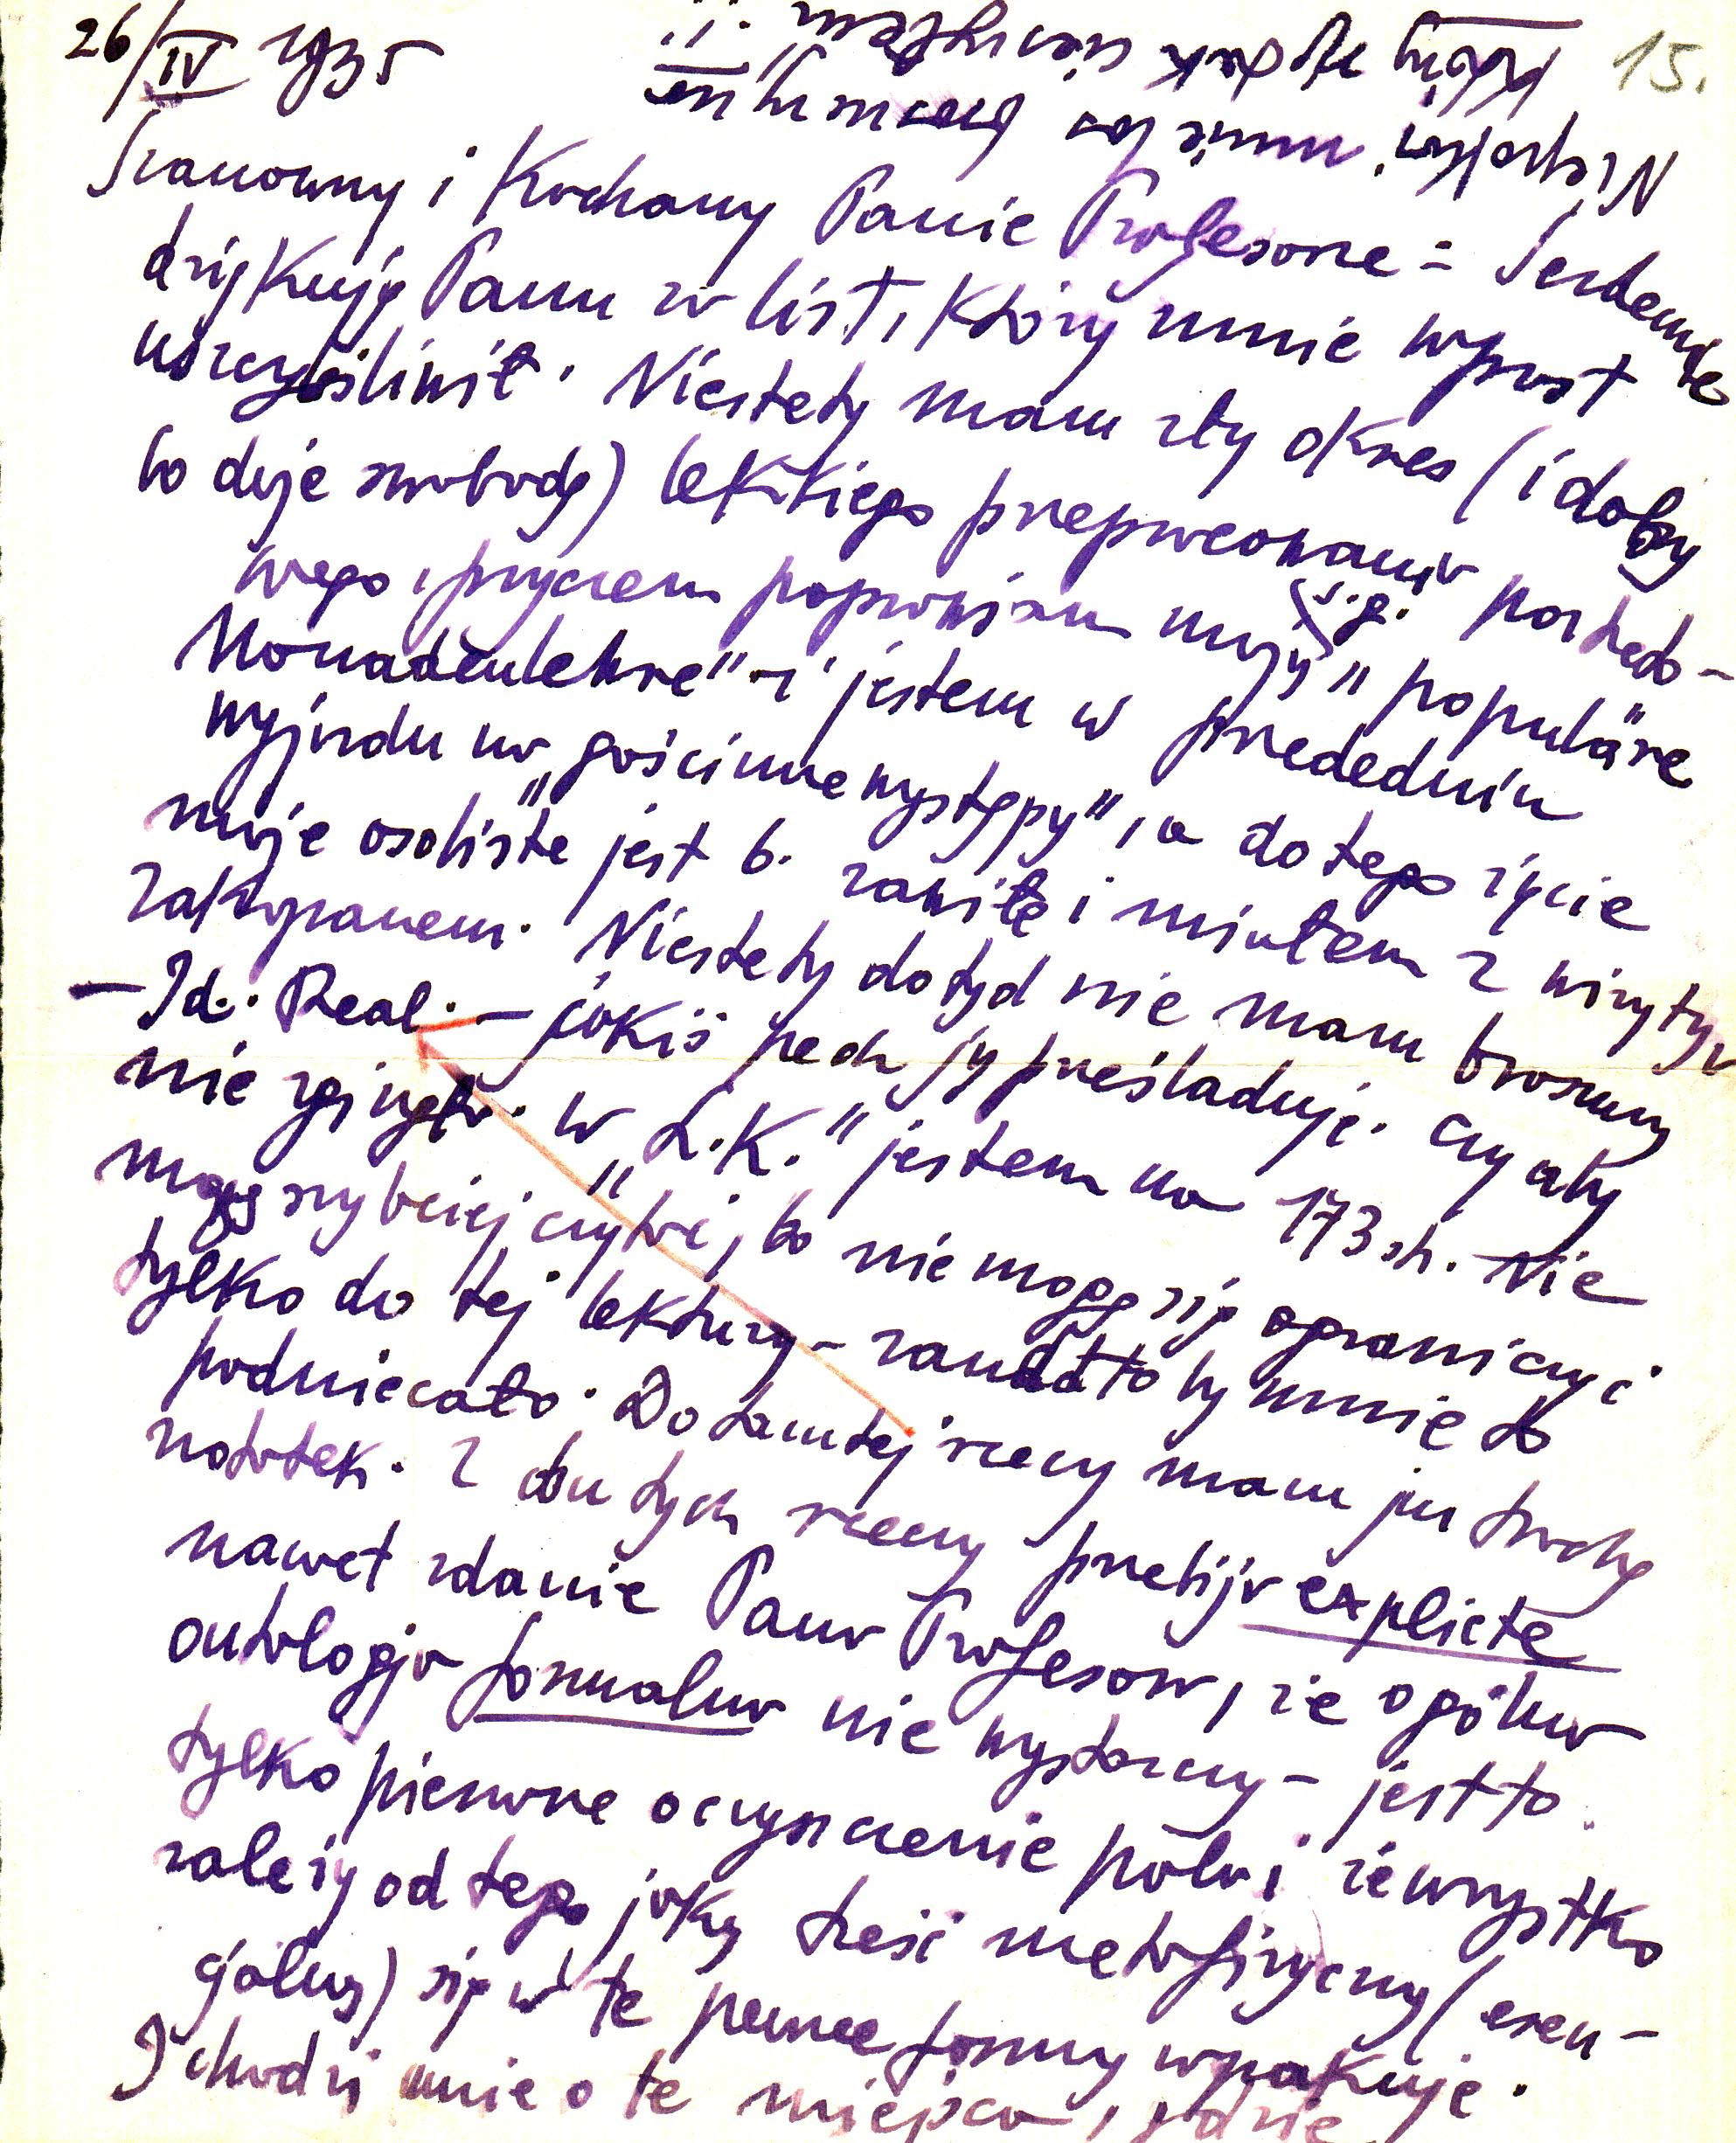 26/IV 1935
15.
Szanowny i Kochany Panie Profesorze = Serdecznie
dziękuję Panu za list, który mnie wprost
uszczęśliwił. Niestety mam zły okres (i dobry
bo daje swobodę) lekkiego przepracowania
wego, przyczem poprawiam moją „populäre
Monadenlehre" – i jestem w przededniu
wyjazdu na „gościnne występy", a do tego życie
moje osobiste jest b. zawiłe i miałem z wizytą
Zakopanem. Niestety dotąd nie mam broszury
– Id. Real. – jakiś pech ją prześladuje. Czy aby
nie zginęła. W „L.K." jestem na 173 str. Nie
mogę szybciej czytać, bo nie mogę się ograniczyć
tylko do tej lektury – zanadto by mnie to
podniecało. Do tamtej rzeczy mam już trochę
notatek. Z obu tych rzeczy przebija explicite
nawet zdanie Pana Profesora, że ogólna
ontologja formalna nie wystarczy – jest to
tylko pierwsze oczyszczenie pola i że wszystko
zależy od tego jaką treść metafizyczną (esen-
cjalną) się w te pewne formy wpakuje.
I chodzi mnie o te miejsca, gdzie